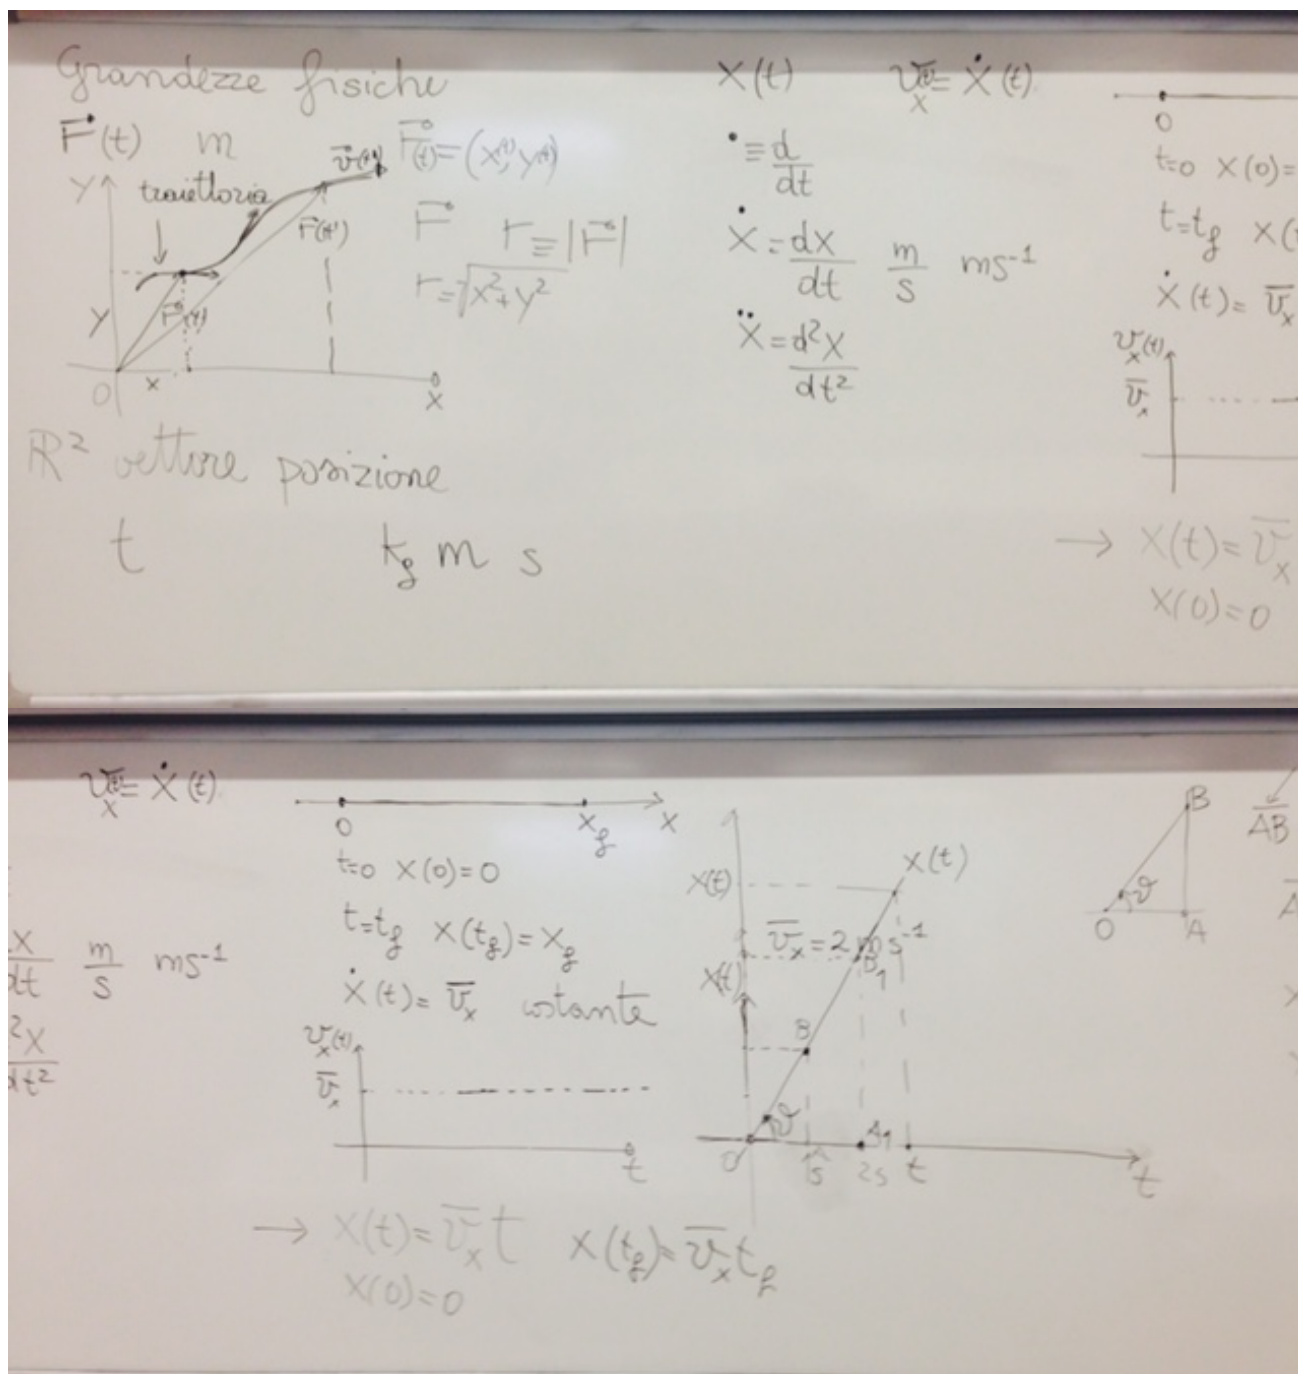 Grandezze fisiche
r⃗(t) m
Y
traiettoria
v⃗(t')
r⃗(t) = (x(t), y(t))
r⃗(t')
r⃗ r ≡ |r⃗|
r = √x²+y²
y
r⃗(t)
O x x
ℝ² vettore posizione
t kg m s
x(t) v̅x(t) = ẋ(t)
• ≡ d/dt
ẋ = dx/dt m/s ms⁻¹
ẍ = d²x/dt²
O
t=0 x(0)=
t=tf x(
ẋ(t) = v̅x
vx(t)
v̅x
→ x(t) = v̅x
x(0)=0
v̅x(t) = ẋ(t)
O xf x
t=0 x(0)=0
t=tf x(tf)=xf
x/dt m/s ms⁻¹
ẋ(t) = v̅x costante
²x/dt²
vx(t)
v̅x
t
→ x(t) = v̅x t x(tf) = v̅x tf
x(0)=0
x(t) x(t)
v̅x = 2 ms⁻¹
B₁
x(t)
B
ϑ
O 1s 2s t t
A₁
B
ϑ
O A
A̅B̅